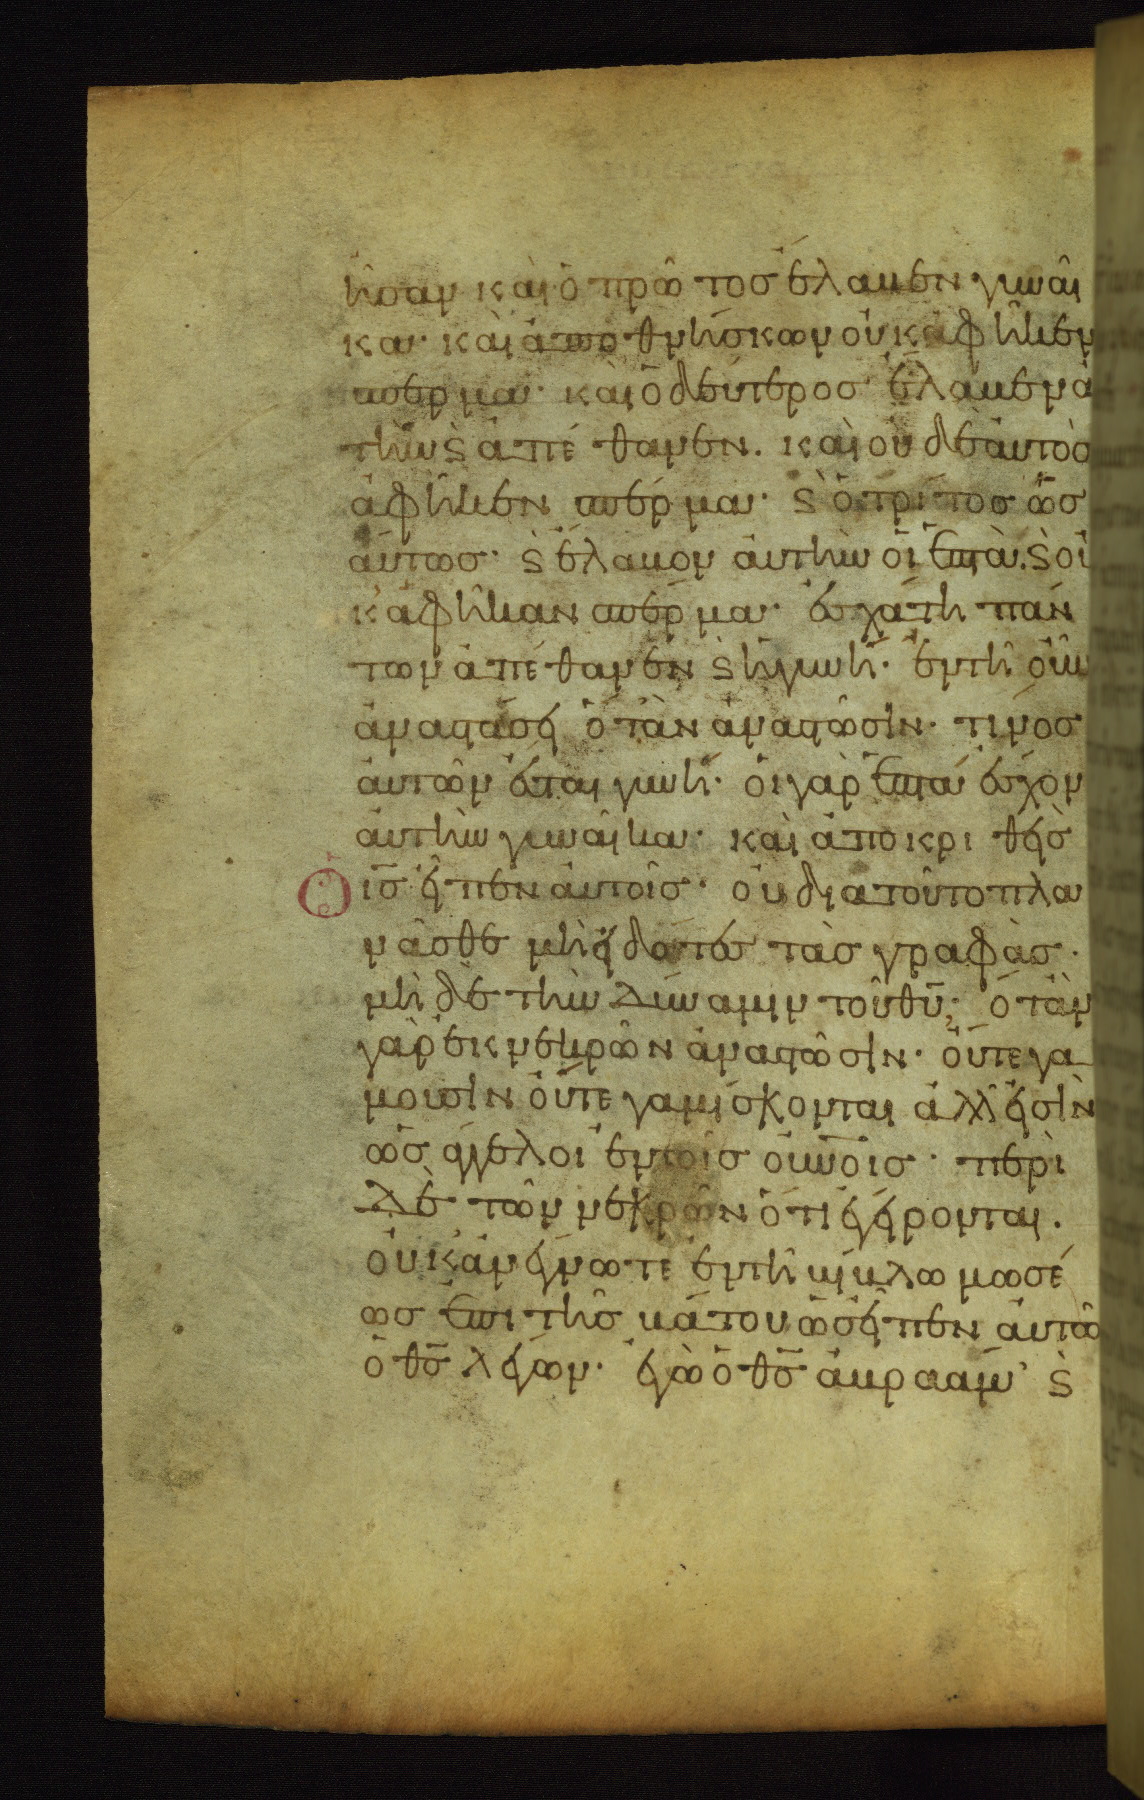 ἦσαν καὶ ὁ πρῶτος ἔλαβεν γυναῖ
κα· καὶ ἀποθνήσκων οὐκ ἀφῆκεν
σπέρμα· καὶ ὁ δεύτερος ἔλαβεν αὐ
τὴν ϗ ἀπέθανεν. καὶ οὐδὲ αὐτὸς
ἀφῆκεν σπέρμα· ϗ ὁ τρίτος ὡς
αύτως· ϗ ἔλαβον αὐτὴν οἱ ἑπτὰ. ϗ οὐ
κ ἀφῆκαν σπέρμα· ἐσχάτη πάν
των ἀπέθανεν ϗ ἡ γυνή· ἐν τῆ οὖν
ἀναστάσει ὅταν ἀναστῶσιν· τίνος
αὐτῶν ἔσται γυνή· οἱ γὰρ ἑπτά ἔσχον
αὐτὴν γυναῖκα· καὶ ἀποκριθεὶς
ὁ ις̅ εἶπεν αὐτοῖς· οὐ διατοῦτο πλα
νᾶσθε μὴ εἰδότες τὰς γραφὰς·
μὴ δὲ τὴν δύναμιν τοῦ θυ̅; ὅταν
γὰρ ἐκ νεκρῶν ἀναστῶσιν· οὔτε γα
μοῦσιν οὔτε γαμίσκονται ἀλλ' εἰσὶν
ὡς ἄγγελοι ἐν τοῖς οὐνο̅ις· περὶ
δὲ τῶν νεκρῶν ὅτι ἐγείρονται.
οὐκ ἀνέγνωτε ἐν τῆ βίβλω μωσέ
ως ἐπι τῆς βάτου ὡς εἶπεν αὐτῶ
ὁ θς̅ λέγων· ἐγὼ ὁ θς̅ ἀβραάμ· ϗ